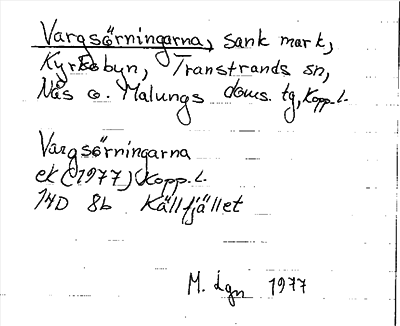 Vargsörningarna, sank mark,
Kyrkobyn, Transtrands sn,
Nås o. Malungs doms. tg, Kopp. l.
Vargsörningarna
ek (1977) Kopp. l.
14D 8b Källfjället
M. Lgn 1977